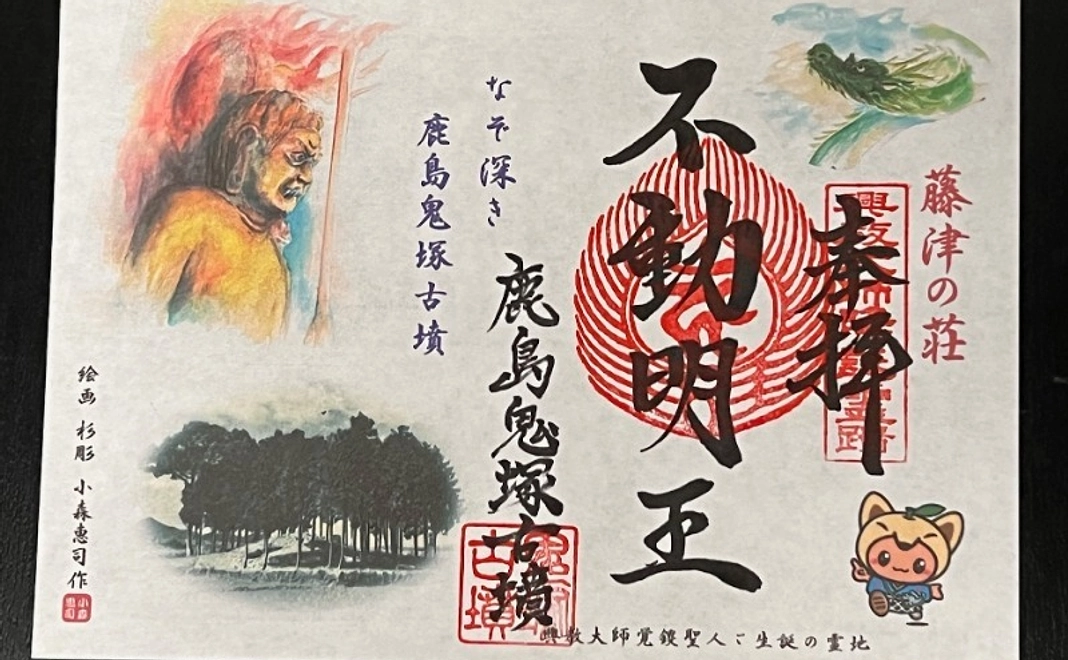 藤津の荘
奉拝
不動明王
なぞ深き
鹿島鬼塚古墳
鹿島鬼塚古墳
鬼塚
古墳
絵画 杉彫 小森惠司作
興教大師覚鑁聖人ご生誕の霊地